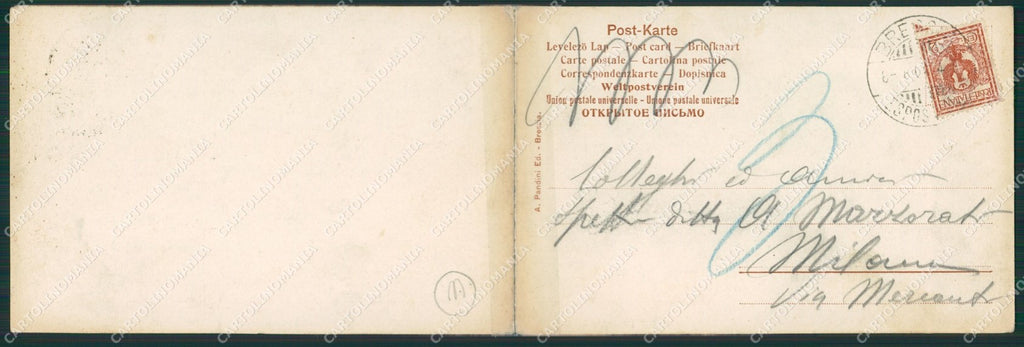 Post-Karte
Levelező Lap – Post card – Briefkaart
Carte postale – Cartolina postale
Correspondenzkarte – Dopisnica
Weltpostverein
Union postale universelle - Unione postale universale
ОТКРЫТОЕ ПИСЬМО
A. Pandini Ed. - Brescia
Colleghi ed amici
Spett. ditta A Marzorati
Milano
Via Mercanti
A
CARTOLINOMANIA